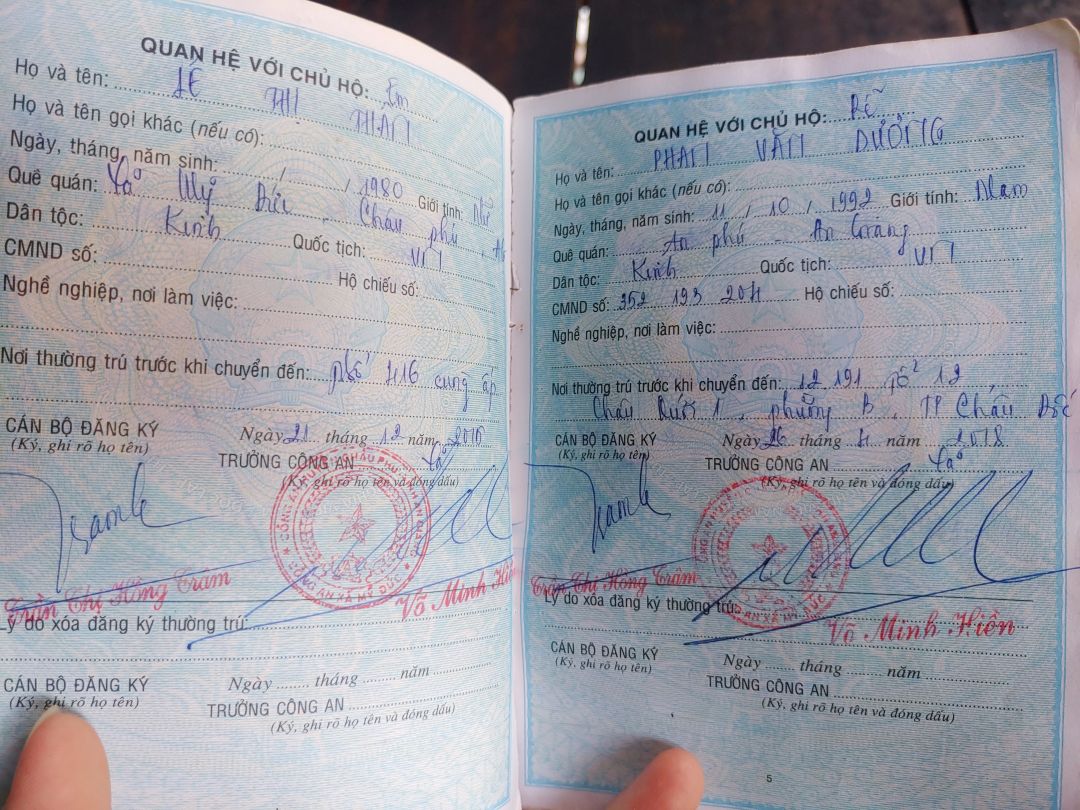 QUAN HỆ VỚI CHỦ HỘ: Em
Họ và tên: LÊ THỊ THAN
Họ và tên gọi khác (nếu có):
Ngày, tháng, năm sinh: / / 1980 Giới tính: Nữ
Quê quán: Xã Mỹ Đức - Châu phú
Dân tộc: Kinh Quốc tịch: VN
CMND số: Hộ chiếu số:
Nghề nghiệp, nơi làm việc:
Nơi thường trú trước khi chuyển đến: 416 cùng ấp
CÁN BỘ ĐĂNG KÝ Ngày 21 tháng 12 năm
(Ký, ghi rõ họ tên) TRƯỞNG CÔNG AN Xã
(Ký, ghi rõ họ tên và đóng dấu)
CÔNG AN XÃ MỸ ĐỨC
Trần Thị Hồng Trâm Võ Minh Hiền
Lý do xóa đăng ký thường trú:
CÁN BỘ ĐĂNG KÝ Ngày tháng năm
(Ký, ghi rõ họ tên) TRƯỞNG CÔNG AN
(Ký, ghi rõ họ tên và đóng dấu)
QUAN HỆ VỚI CHỦ HỘ: Rể
Họ và tên: PHAN VĂN DƯỠNG
Họ và tên gọi khác (nếu có):
Ngày, tháng, năm sinh: 11 / 10 / 1992 Giới tính: Nam
Quê quán: An phú - An Giang
Dân tộc: Kinh Quốc tịch: VN
CMND số: 352 193 204 Hộ chiếu số:
Nghề nghiệp, nơi làm việc:
Nơi thường trú trước khi chuyển đến: 12 191 tổ 12,
Châu 1, phường B, TP Châu Đốc
CÁN BỘ ĐĂNG KÝ Ngày 26 tháng 4 năm 2018
(Ký, ghi rõ họ tên) TRƯỞNG CÔNG AN Xã
(Ký, ghi rõ họ tên và đóng dấu)
Trần Thị Hồng Trâm
Lý do xóa đăng ký thường trú:
Võ Minh Hiền
CÁN BỘ ĐĂNG KÝ Ngày tháng năm
(Ký, ghi rõ họ tên) TRƯỞNG CÔNG AN
(Ký, ghi rõ họ tên và đóng dấu)
5